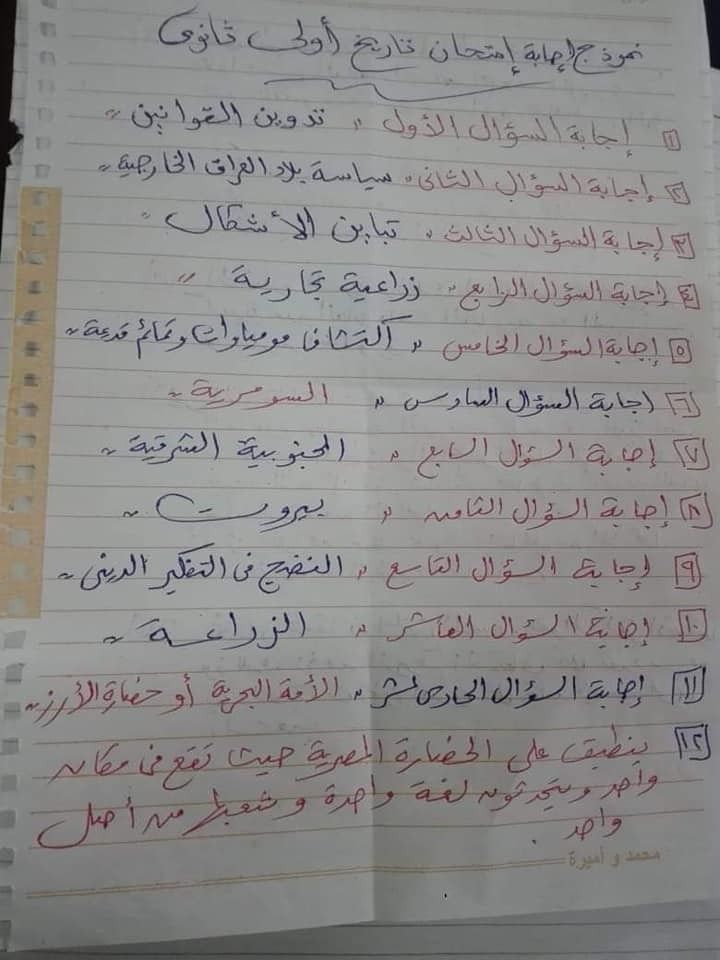 نموذج إجابة إمتحان تاريخ أولى ثانوى
١ إجابة السؤال الأول " تدوين القوانين "
٢ إجابة السؤال الثانى " سياسة بلاد العراق الخارجية "
٣ إجابة السؤال الثالث " تباين الأشكال "
٤ إجابة السؤال الرابع " زراعية تجارية "
٥ إجابة السؤال الخامس " اكتشاف مومياوات وتمائم قديمة "
٦ اجابة السؤال السادس " السومرية "
٧ إجابة السؤال السابع " الجنوبية الشرقية "
٨ إجابة السؤال الثامن " بيروت "
٩ إجابة السؤال التاسع " النضج فى التفكير الدينى "
١٠ إجابة السؤال العاشر " الزراعة "
١١ إجابة السؤال الحادى عشر " الأمة البحرية أو حضارة الأرز "
١٢ ينطبق على الحضارة المصرية حيث تقع فى مكان
واحد ويتحدثون لغة واحدة وشعبها من أصل
واحد .
محمد و أميرة